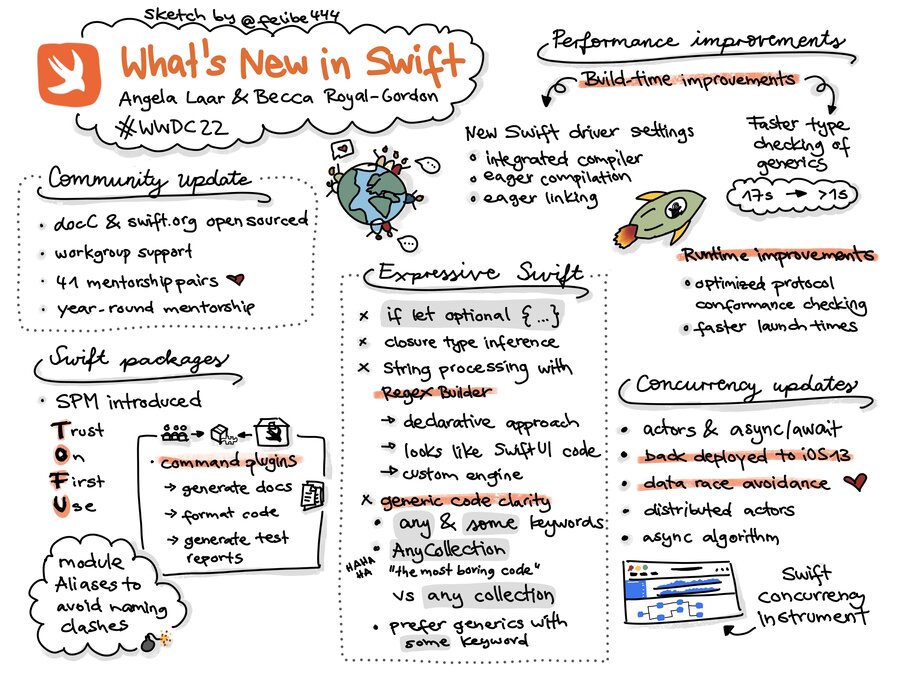 sketch by @felibe444
What's New in Swift
Angela Laar & Becca Royal-Gordon
#WWDC22
Community update
• docC & swift.org open sourced
• workgroup support
• 41 mentorship pairs
• year-round mentorship
Swift packages
• SPM introduced
Trust
On
First
Use
• command plugins
→ generate docs
→ format code
→ generate test
reports
module
Aliases to
avoid naming
clashes
Expressive Swift
x if let optional {...}
x closure type inference
x String processing with
Regex Builder
→ declarative approach
→ looks like SwiftUI code
→ custom engine
x generic code clarity
• any & some keywords
• AnyCollection
HAHA
HA
"the most boring code"
vs any collection
• prefer generics with
some keyword
Performance improvements
Build-time improvements
New Swift driver settings
• integrated compiler
• eager compilation
• eager linking
Faster type
checking of
generics
17s → >1s
Runtime improvements
• optimized protocol
conformance checking
• faster launch times
Concurrency updates
• actors & async/await
• back deployed to iOS13
• data race avoidance
• distributed actors
• async algorithm
Swift
concurrency
instrument